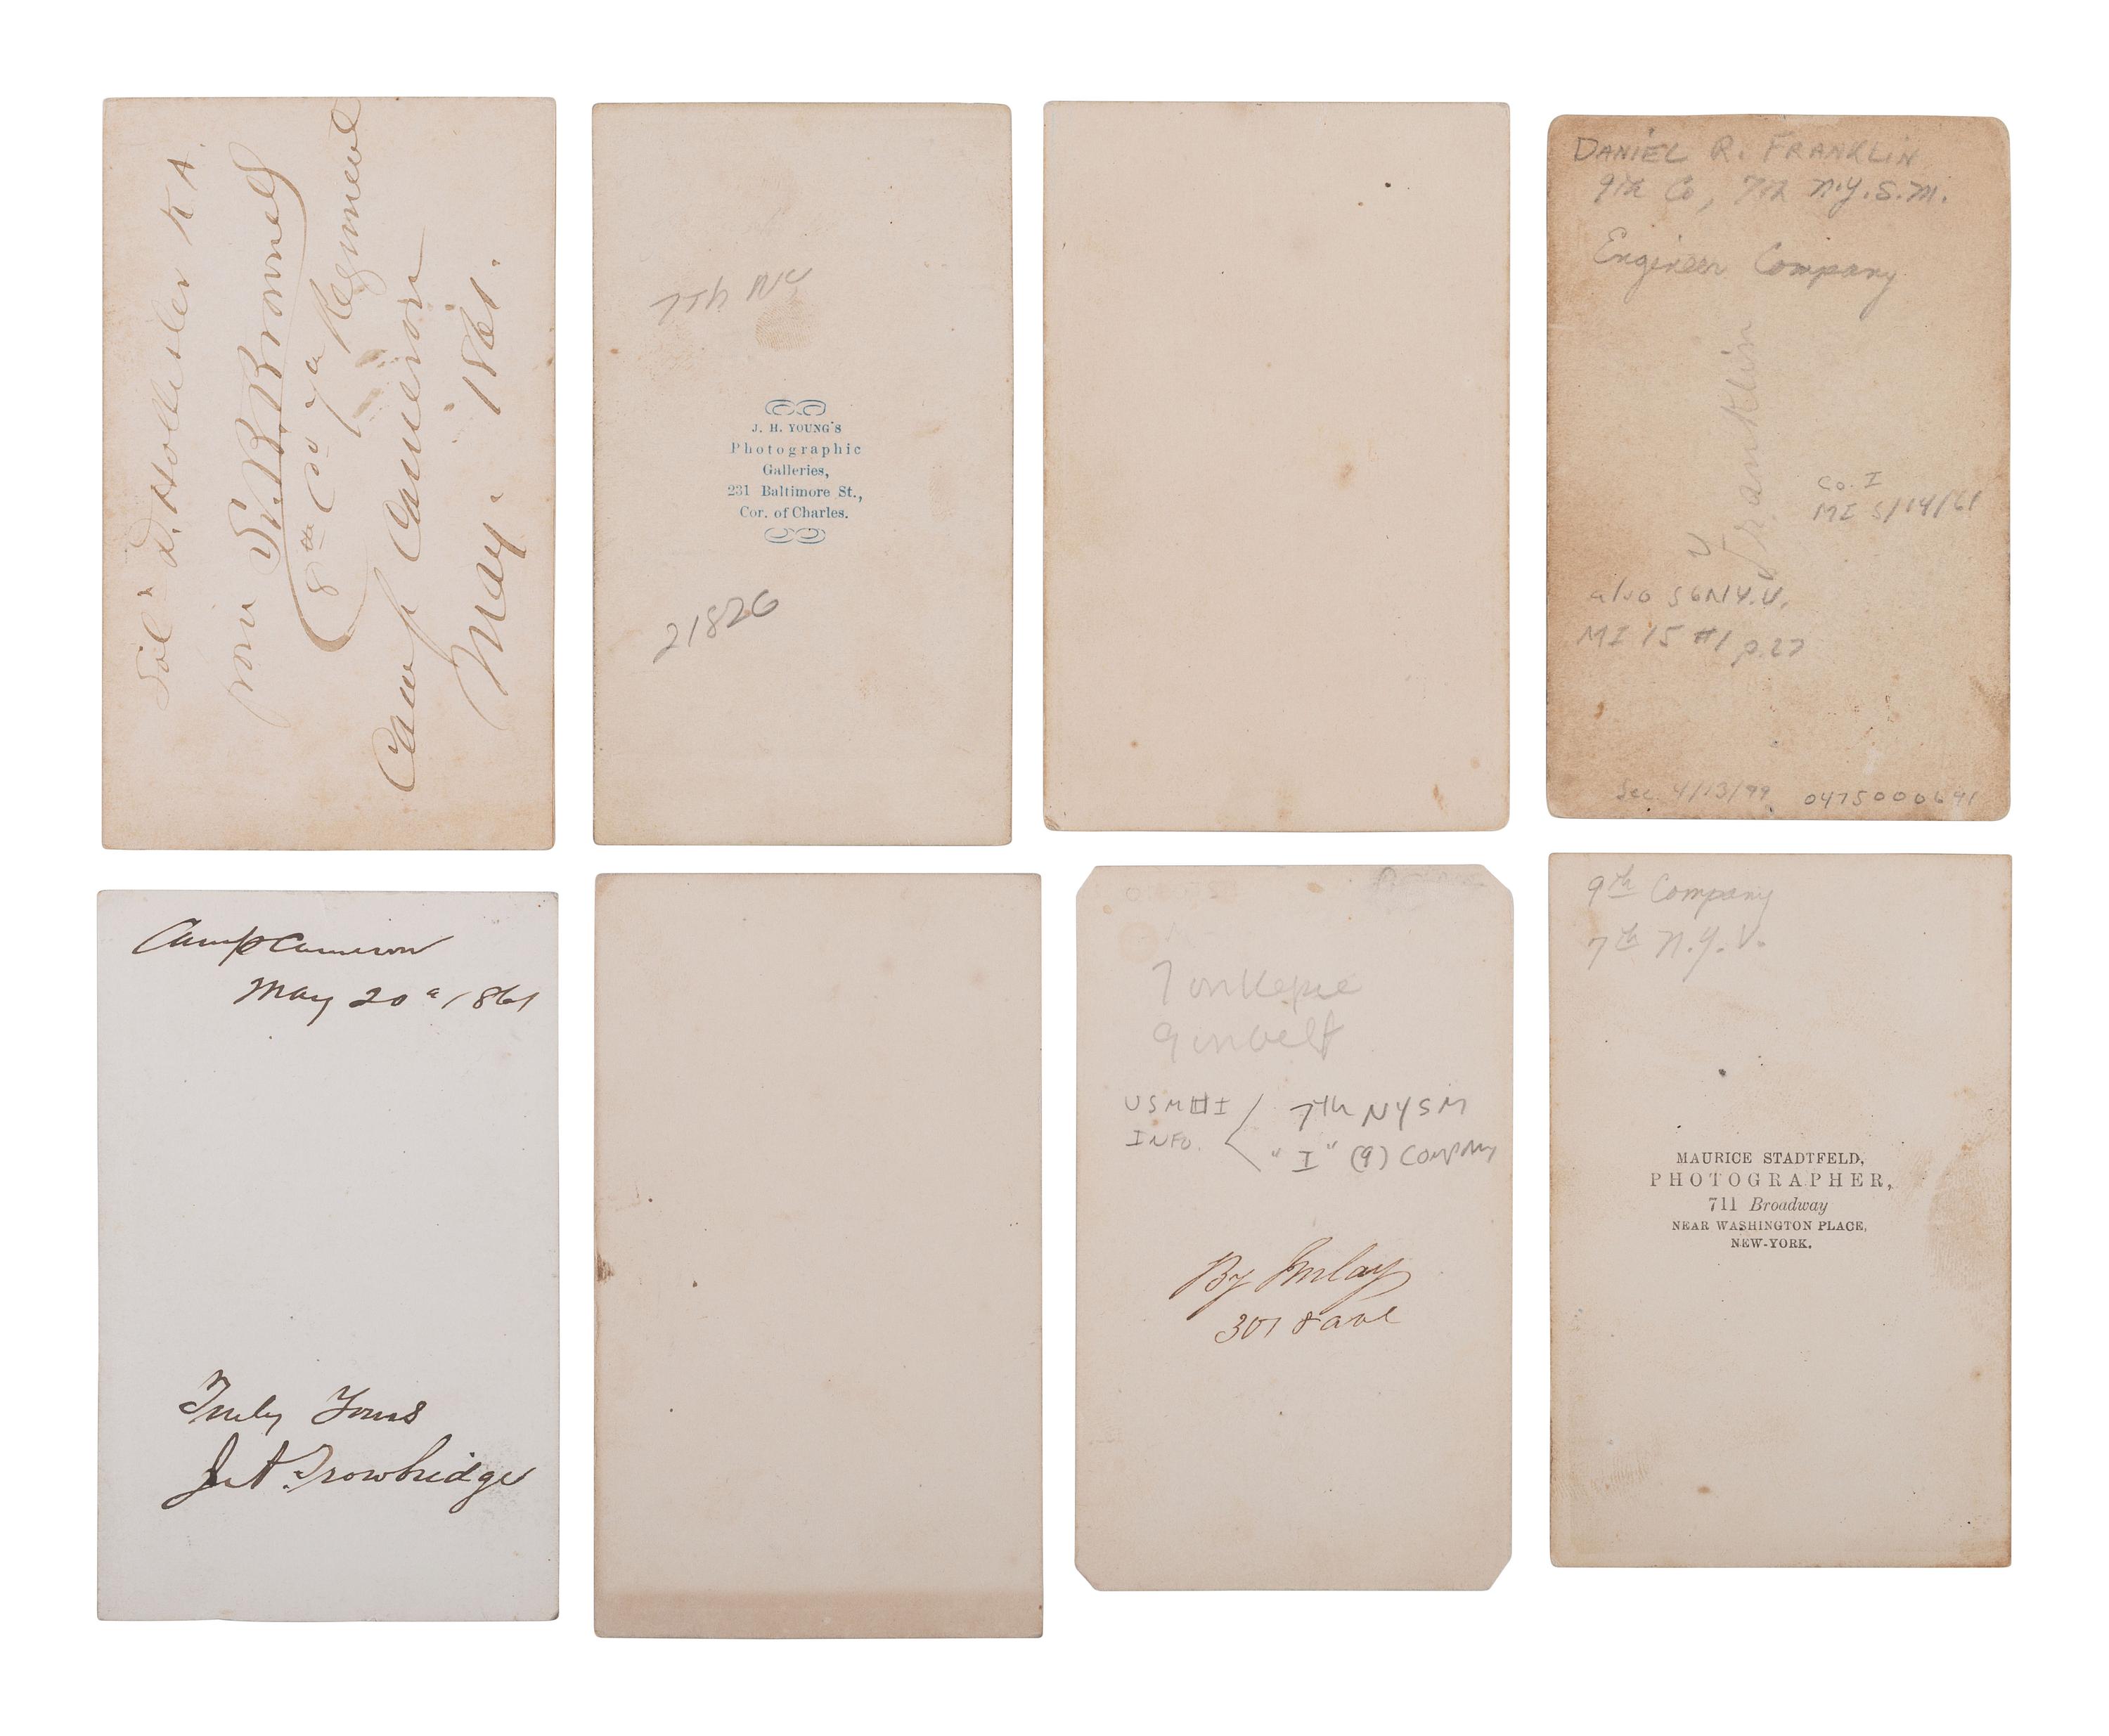 from S. R. Bromel
8th Co 7th Regiment
Camp Cameron
May. 1861.
7th NY
J. H. YOUNG'S
Photographic
Galleries,
231 Baltimore St.,
Cor. of Charles.
21826
DANIEL R. FRANKLIN
9th Co, 7th N.Y.S.M.
Engineer Company
Franklin
Co. I
MI 5/14/61
also 56NY.V.
MI 15 #1 p.27
Sec 4/13/99 0475000641
Camp Cameron
May 20th 1861
Truly Yours
J. A. Trowbridge
7 on Kepie
9 on belt
USMHI INFO.
7th NYSM
"I" (9) Company
By Imlay
307 8 ave
9th Company
7th N.Y.V.
MAURICE STADTFELD,
PHOTOGRAPHER,
711 Broadway
NEAR WASHINGTON PLACE,
NEW-YORK.